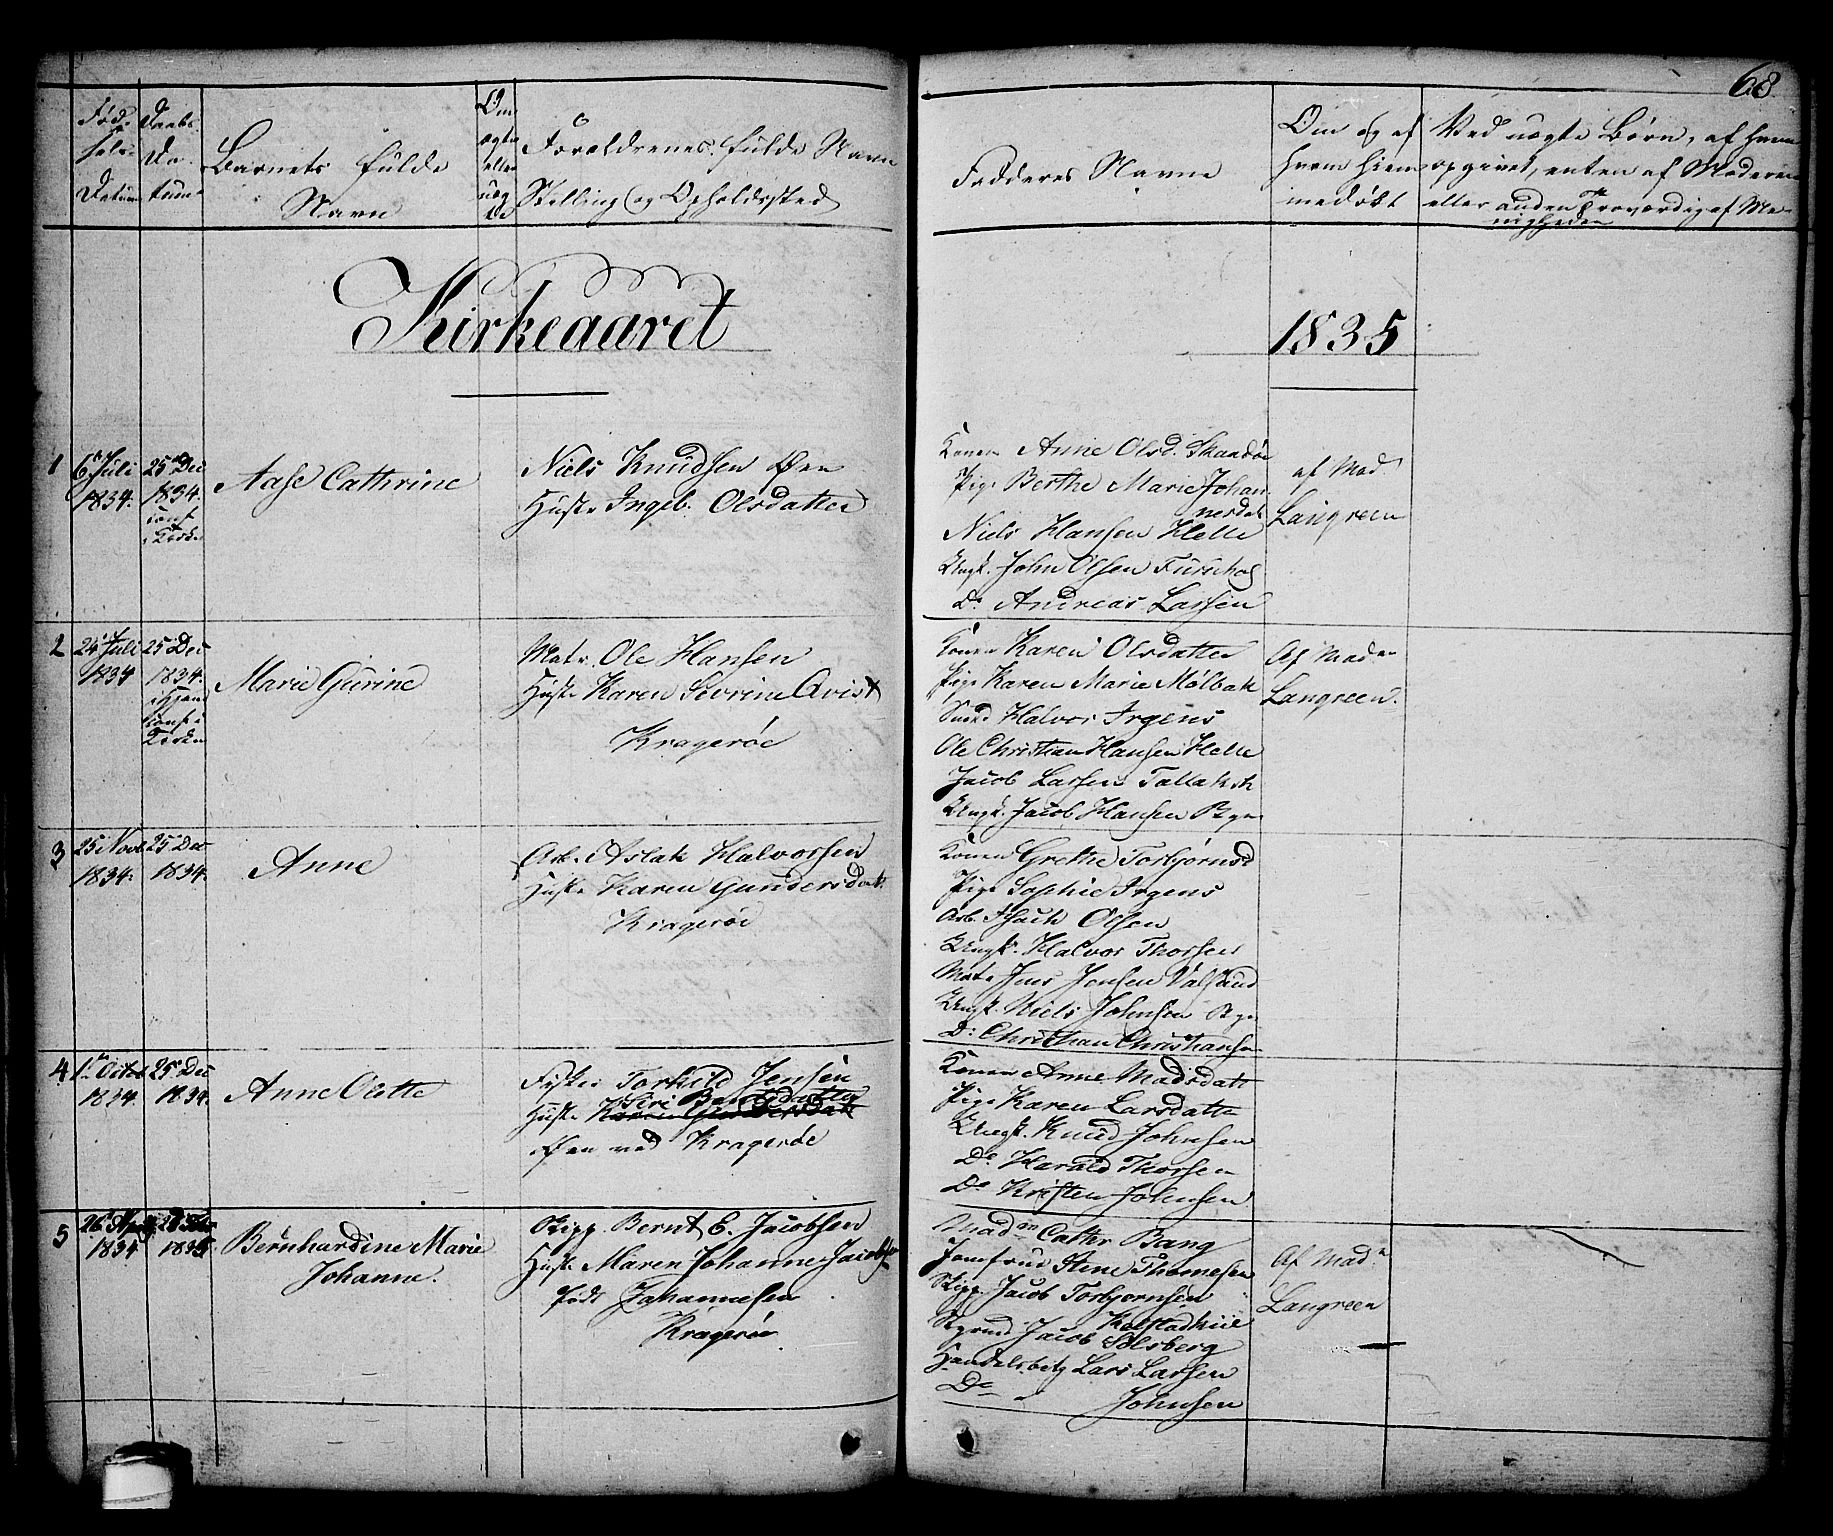 68.
Fød-
sels-
Datum
Daabs.
Da-
tum
Barnets fulde
Navn
Om
ægte
eller
uæg
te
Forældrenes fulde Navn
Stilling og Opholdssted
Fadderes Navne
Om og af
hvem hiem
medøbt
Ved uægte Børn, af hvem
opgivet, enten af Moderen
eller anden Troværdig af Me-
nigheden
Kirkeaaret
1835
1
6 Juli
1834.
25 Dec
1834.
conf
i Kirke
Aase Cathrine
Niels Knudsen Øen
Hustr Ingeb. Olsdatter
Konen Anne Olsd. Skandøe
Pige Berthe Marie Johan-
nesdat
Niels Hansen Helle
Ungk. John Olsen Furuhol
Do Andreas Larsen
af Mad
Langreen
2
24 Juli
1834
25 Dec
1834.
i Hjem
conf i
Kirken
Marie Gurine
Matr. Ole Hansen
Hustr Karen Sevrine Qvist
Kragerøe
Konen Karen Olsdatter
Pige Karen Marie Mølbak
Smed Halvor Irgens
Ole Christian Hansen Helle
Jacob Larsen Tallaksh
Ungk. Jacob Hansen
Af Mad
Langreen.
3
25 Novb
1834.
25 Dec
1834.
Anne
Arb. Aslak Halvorsen
Hustr Karen Gundersdat.
Kragerøe
Konen Grethe Torbjørnsd
Pige Sophie Irgens
Arb. Isack Olsen
Ungk. Halvor Thorsen
Matr Jens Jensen Valsund
Ungk. Niels Johnsen
Do Christian Christiansen
4
1 Octob
1834.
25 Dec
1834.
Anne Olette
Fisker Torkild Jensen
Siri Bentsdatter
Hustr Karen Gundersdat
Øen ved Kragerøe
Konen Anne Madsdatt
Pige Karen Larsdatte
Ungk. Knud Johnsen
Do Harald Thorsen
Do Kristen Johnsen
5
26
1834
28 Dec
1834
Bernhardine Marie
Johanne.
Skipp Bernt E. Jacobsen
Hustr Maren Johanne Jacobse
født Johannesen
Kragerøe
Madm Catter Bang
Jomfrue Stine Thomesen
Skipp. Jacob Torbjornsen
Kalstadkiil
Jacob Solsberg
Handelsbetj Lars Larsen
Do Johnsen
Af Mad.
Langreen